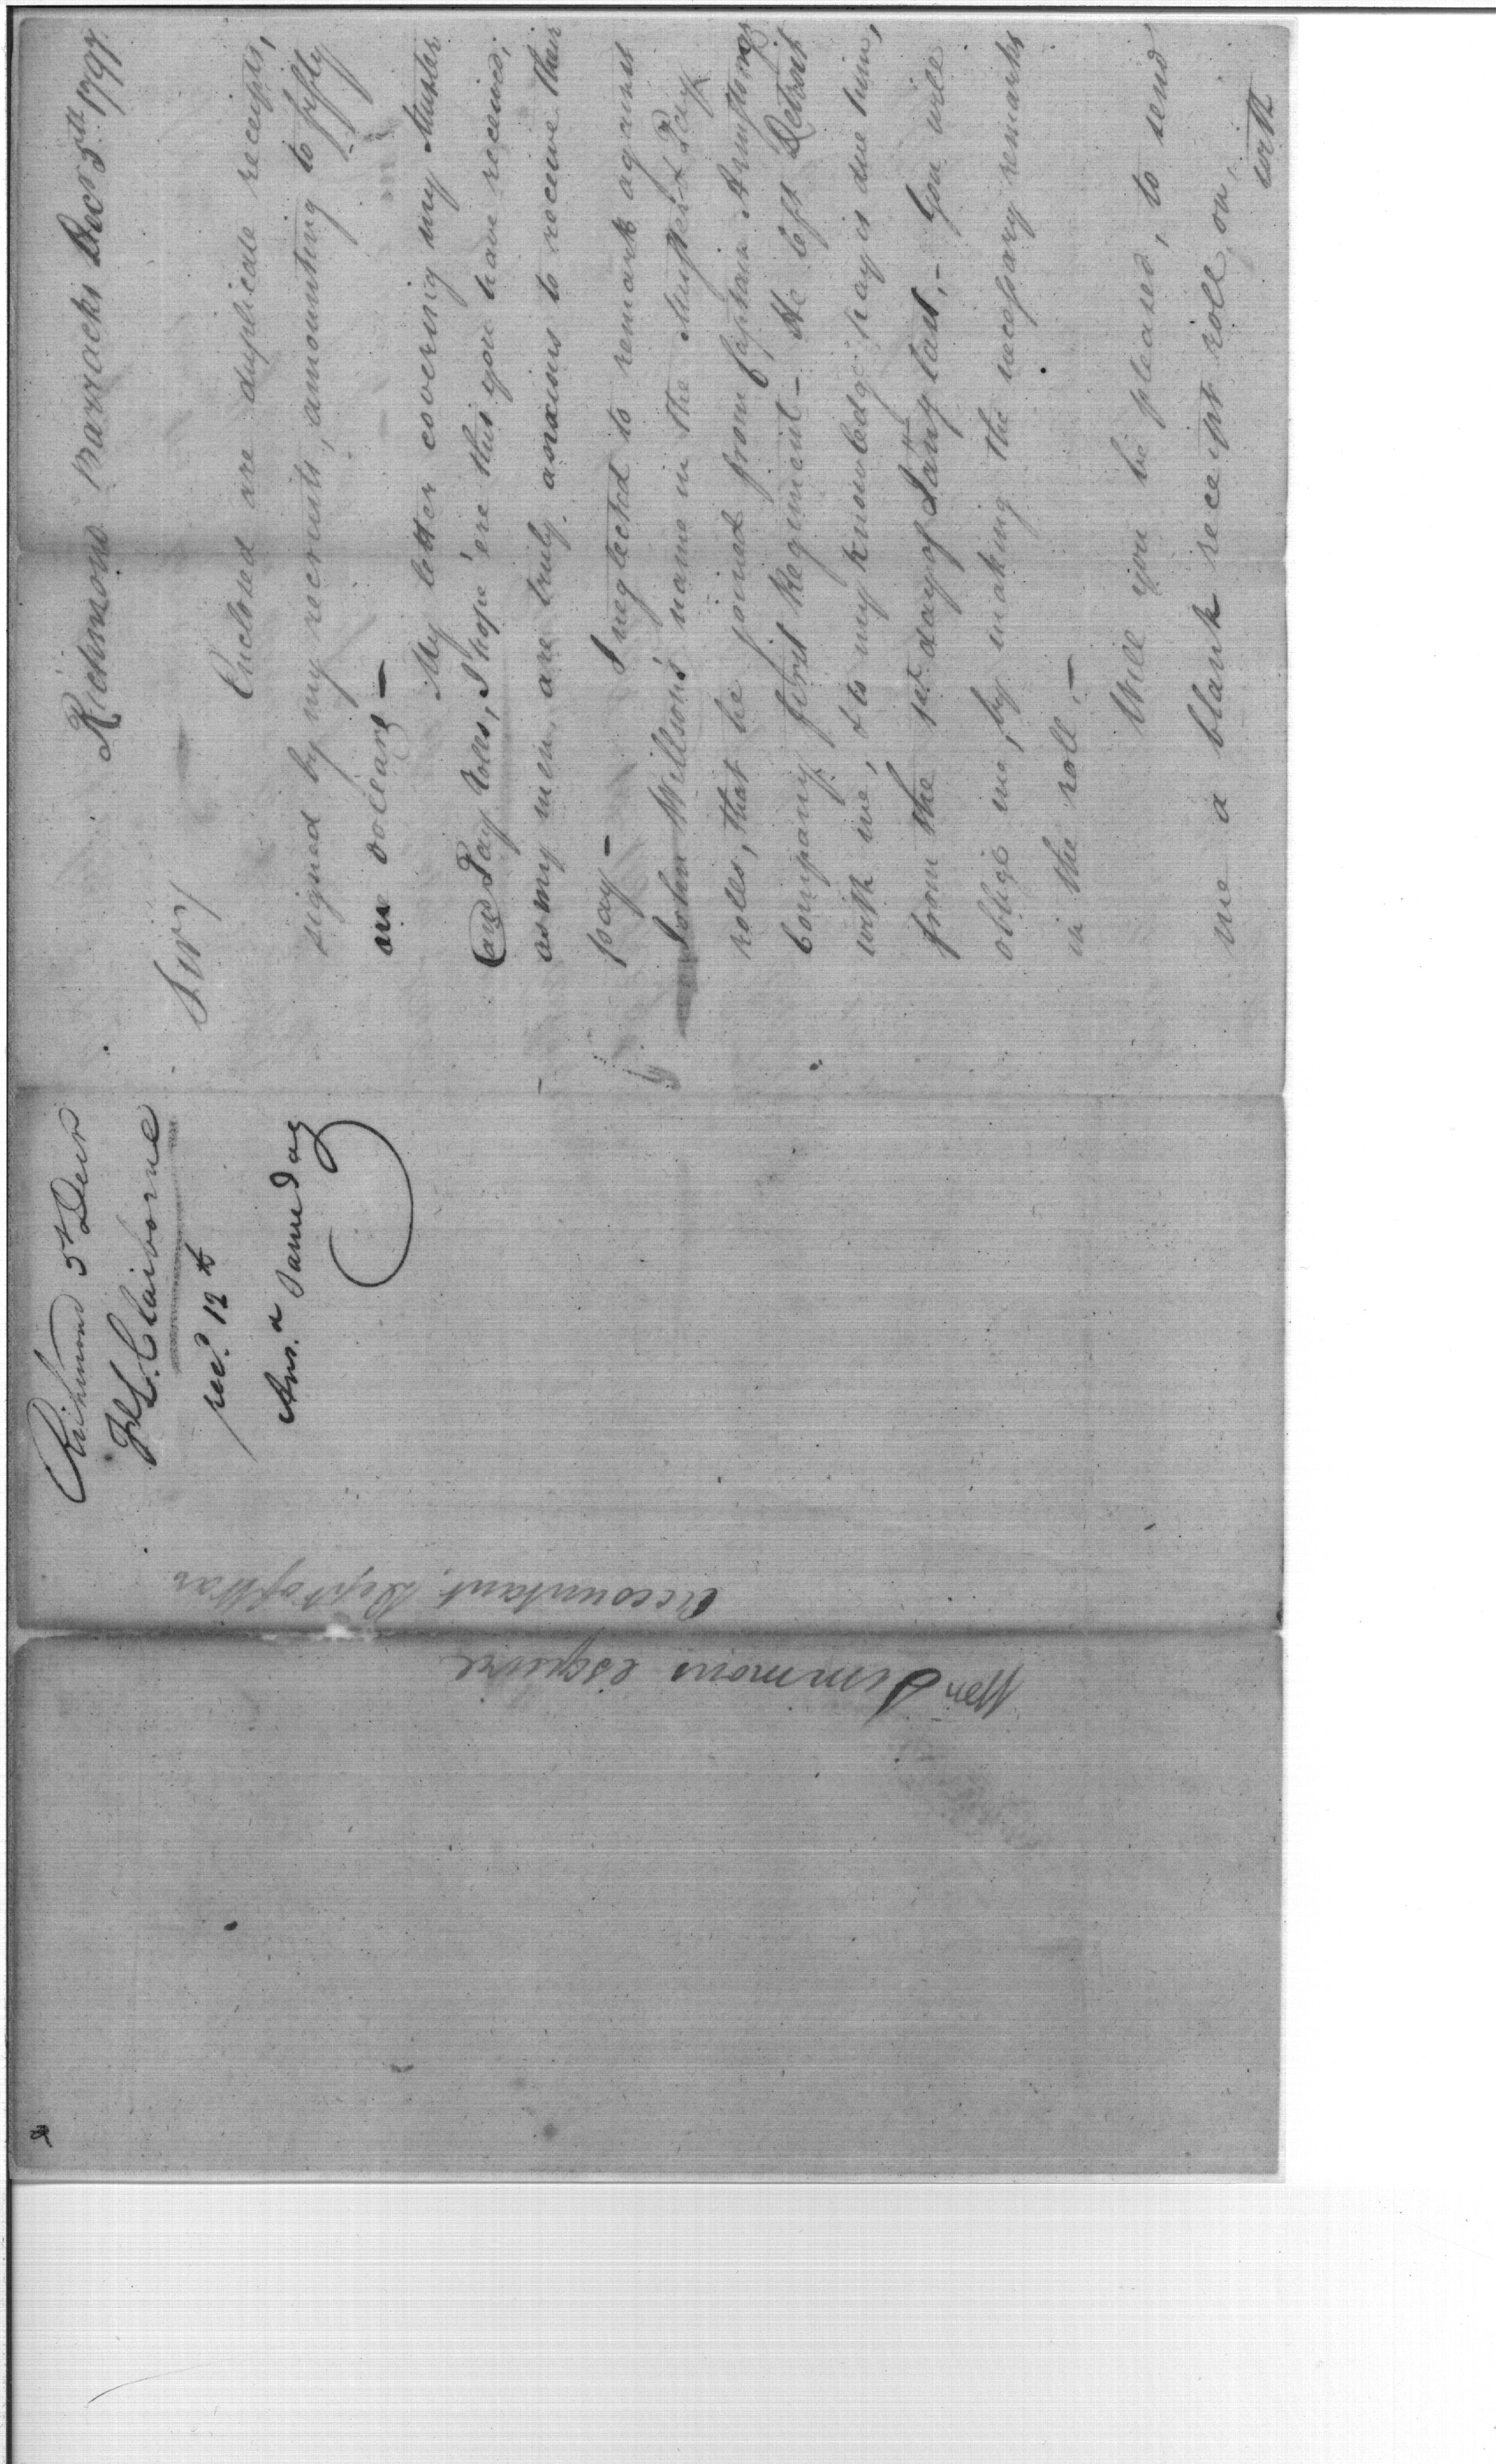 Richmond barracks Decr 5th 1797
Sir/
Enclosed are duplicate receipts,
signed by my recruits, amounting to fifty
one dollars –
My letter covering my Muster
and Pay rolls, I hope 'ere this you have received;
as my men are truly anxious to receive their
pay –
I neglected to remark against
John Willson's name in the Muster & Pay
rolls, that he joined from Captain Armstrongs
Company first Regiment – He left Detroit
with me, & to my knowledge pay is due him,
from the 1st day of Jany last, – You will
oblige me, by making the necessary remarks
in the roll, –
Will you be pleased, to send
me a blank receipt roll, on,
with
Richmond 5th Decr
F L Claiborne
recd. 12th
Ans.d same day
Wm Simmons esquire
Accountant, Dept of War